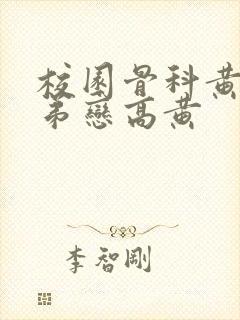 校園骨科黃
弟戀高黃
李智剛